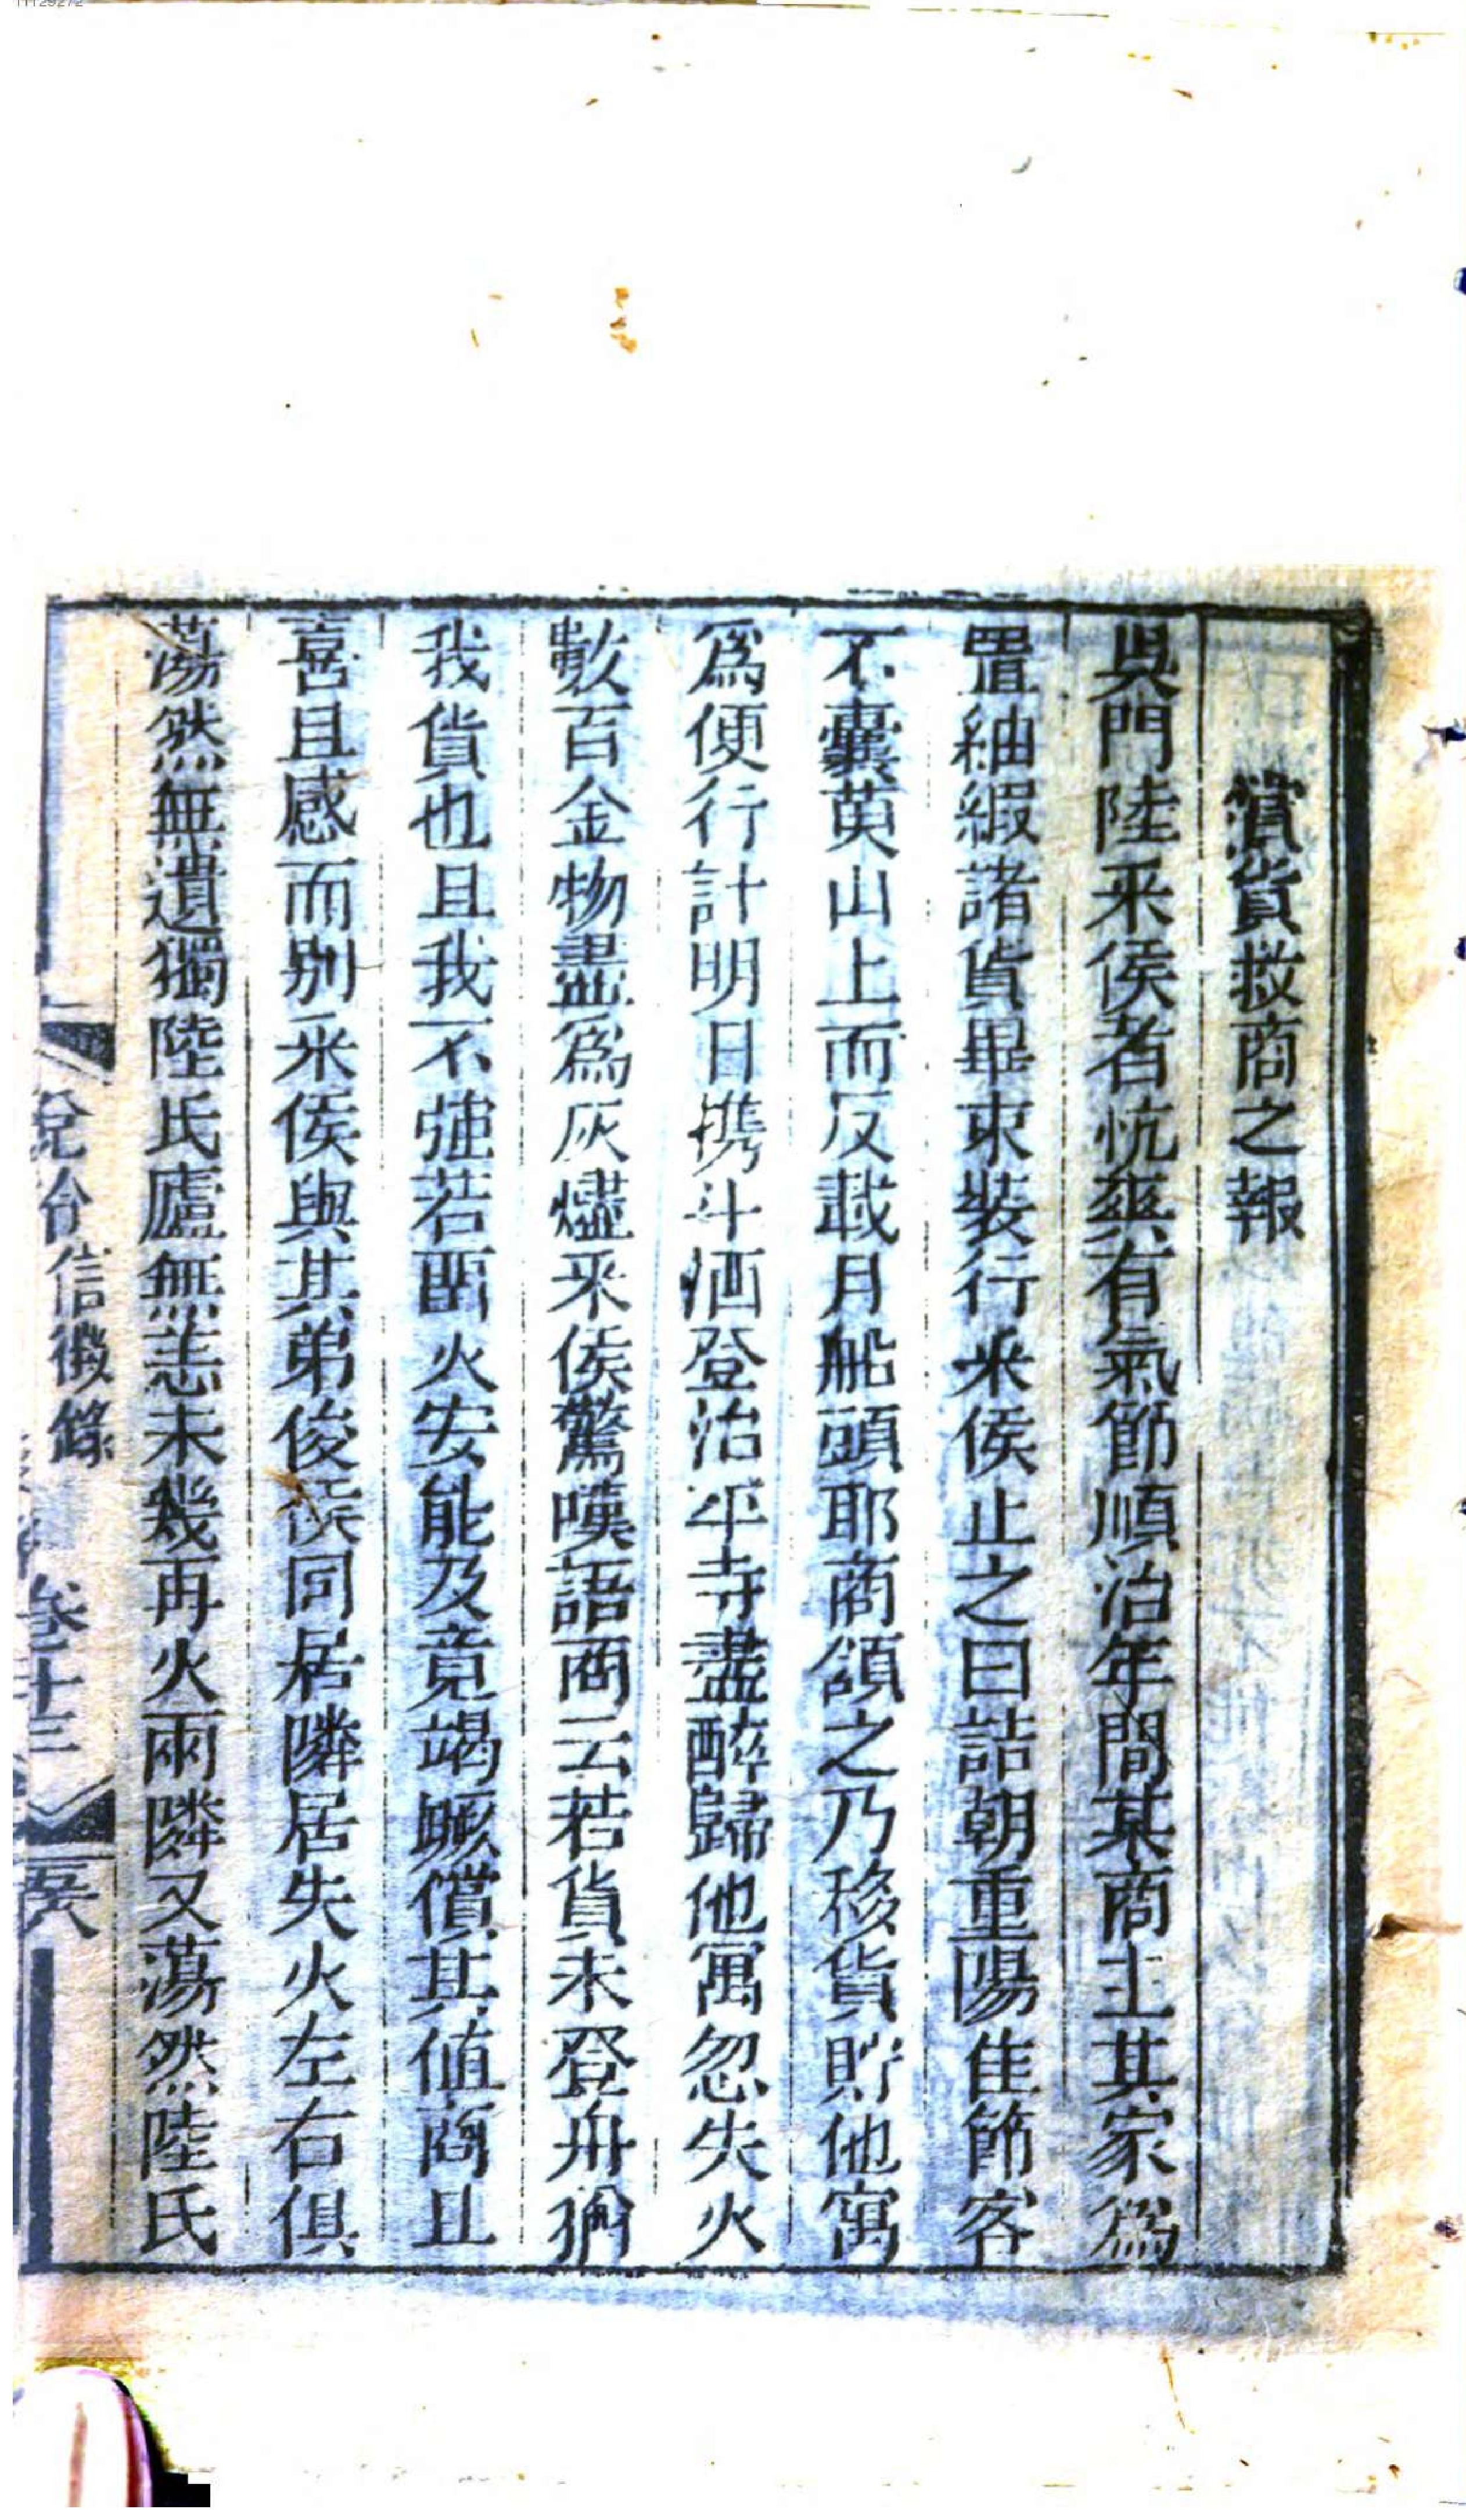 償貨救商之報
吳門陸采侯者忼爽有氣節順治年間某商主其家爲
置紬緞諸貨畢束裝行采侯止之曰詰朝重陽佳節客
不囊萸山上而反載月船頭耶商頷之乃移貨貯他寓
爲便行計明日携斗酒登治平寺盡醉歸他寓忽失火
數百金物盡爲灰燼采侯驚嘆語商云若貨未登舟猶
我貨也且我不強若畱火安能及竟竭蹶償其值商且
喜且感而别采侯與其弟俊侯同居隣居失火左右俱
蕩然無遺獨陸氏廬無恙未幾再火兩隣又蕩然陸氏
信徵錄
卷十三